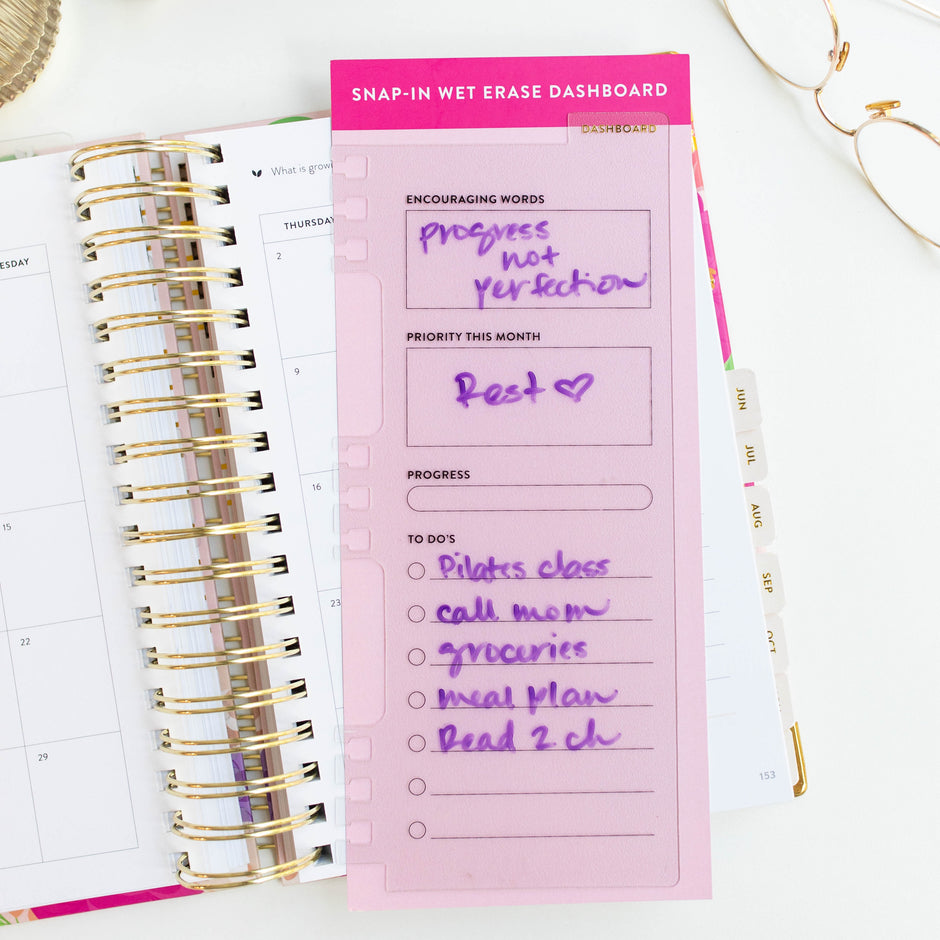 SNAP-IN WET ERASE DASHBOARD
DASHBOARD
What is growi
ESDAY
THURSDAY
2
9
16
23
15
22
29
ENCOURAGING WORDS
progress
not
perfection
PRIORITY THIS MONTH
Rest ♡
PROGRESS
TO DO'S
Pilates class
call mom
groceries
meal plan
Read 2 ch
JUN
JUL
AUG
SEP
OCT
153